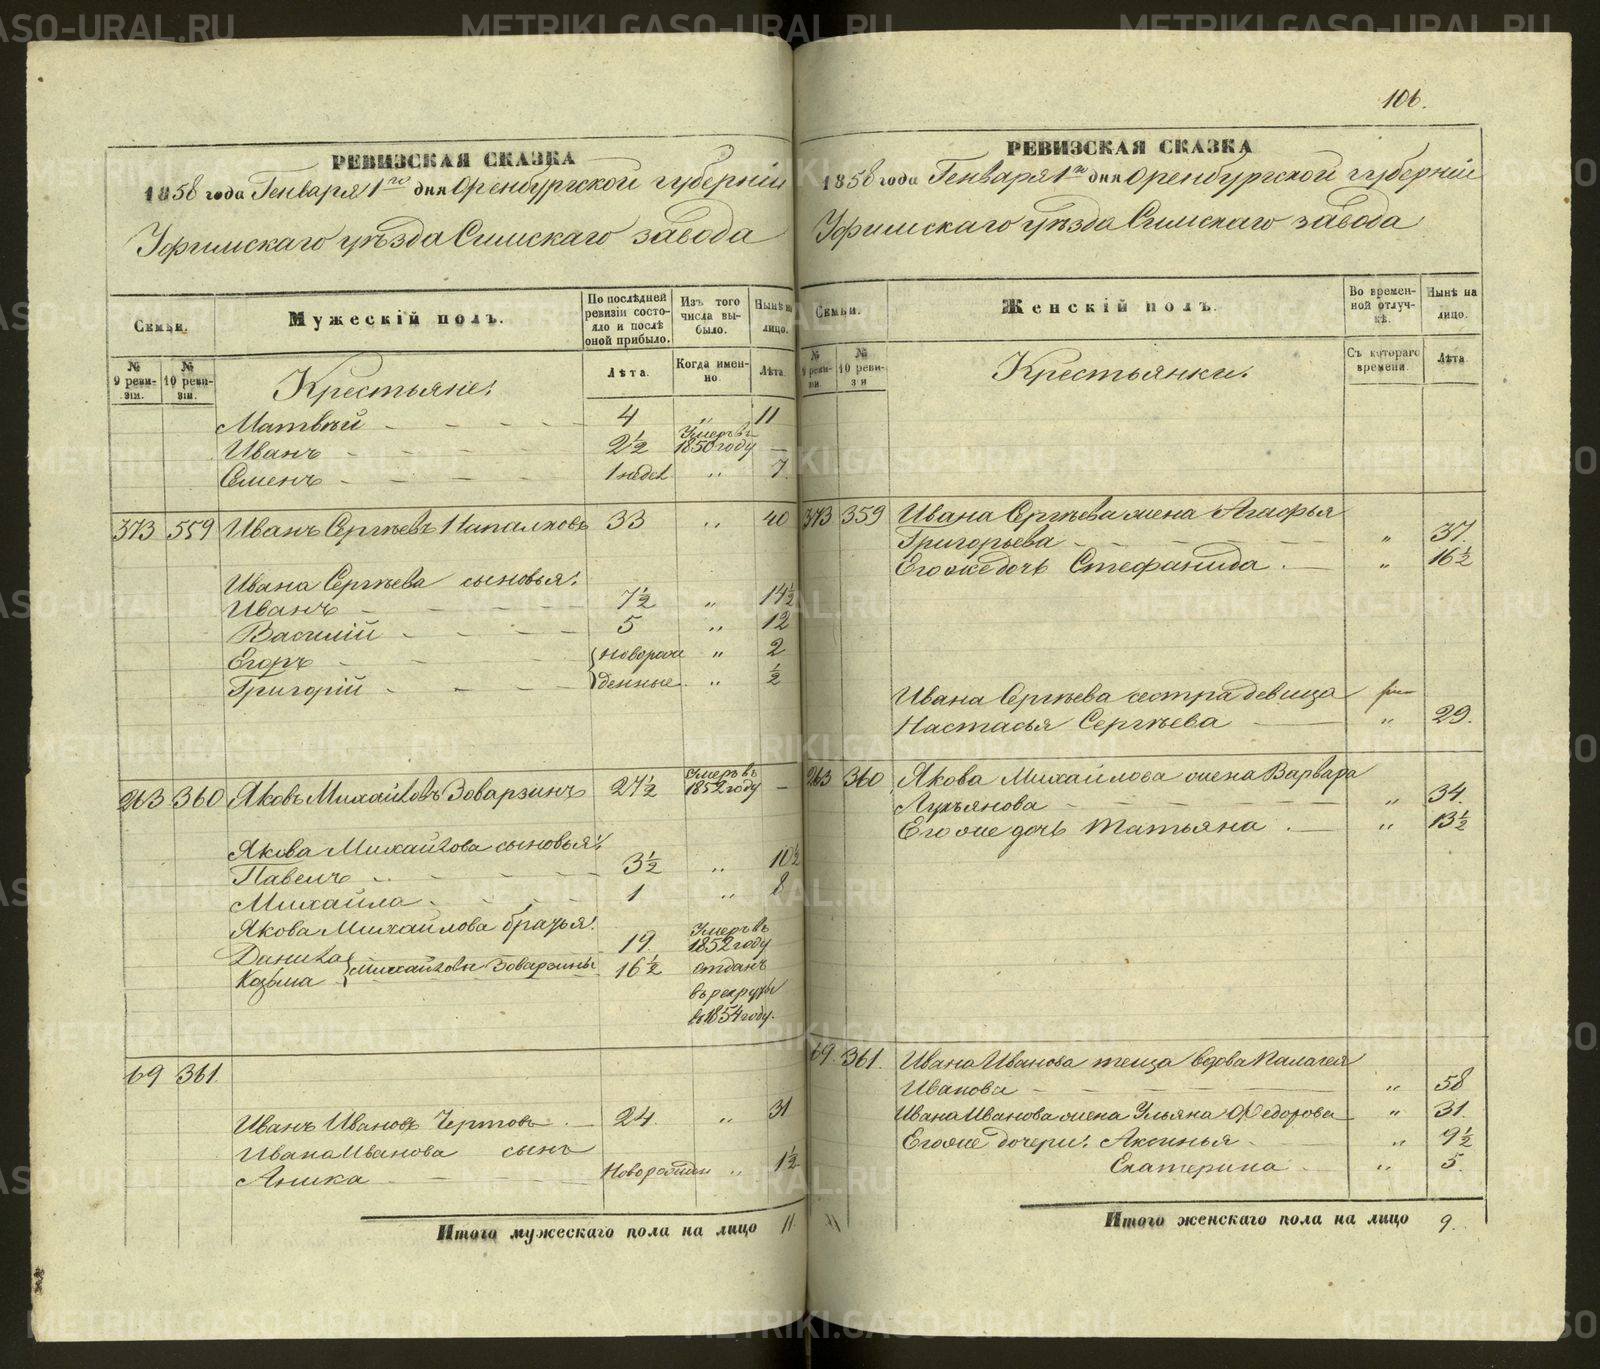 106.
РЕВИЗСКАЯ СКАЗКА
1858 года Генваря 1го дня Оренбургской губерніи
Уфимскаго уѣзда Симскаго завода
Семьи.
Мужескій полъ.
По послѣдней ревизіи состояло и послѣ оной прибыло.
Изъ того числа выбыло.
Нынѣ на лицо.
№ 9 ревизіи.
№ 10 ревизіи.
Крестьяне:
Лѣта.
Когда именно.
Лѣта.
Матвѣй - - - - 4 „ 11
Иванъ - - - - 2½ Умеръ въ 1850 году —
Семенъ - - - - 1 недел „ 7.
373 559 Иванъ Сергѣевъ Напалковъ 33 „ 40
Ивана Сергѣева сыновья:
Иванъ - - - - 7½ „ 14½
Василій - - - - 5 „ 12
Егоръ - - - - { Новорож „ 2
Григорій - - - - } денные „ ½
263 360 Яковъ Михайловъ Зоварзинъ 27½ Умеръ въ 1852 году —
Якова Михайлова сыновья:
Павелъ - - - - 3½ „ 10½
Михайла - - - - 1 „ 8
Якова Михайлова братья:
Данила } Михайловы Зоварзины 19 Умеръ въ 1852 году
Козьма 16½ отданъ
въ рекруты
въ 1854 году.
69 361.
Иванъ Ивановъ Чертовъ - 24. „ 31
Ивана Иванова сынъ
Аника - - - - Новорожден „ 1½
Итого мужескаго пола на лицо 11
РЕВИЗСКАЯ СКАЗКА
1858 года Генваря 1го дня Оренбургской губерніи
Уфимскаго уѣзда Симскаго завода
Семьи.
Женскій полъ.
Во временной отлучкѣ.
Нынѣ на лицо.
№ 9 ревизіи
№ 10 ревизіи
Крестьянки:
Съ котораго времени.
Лѣта.
373 359 Ивана Сергѣева жена Агафья
Григорьева - - - - „ 37.
Его же дочь Стефанида. - „ 16½
Ивана Сергѣева сестра девица
Настасья Сергѣева - „ 29.
263 360 Якова Михайлова жена Варвара
Лукьянова - - - - „ 34.
Его же дочь Татьяна. - „ 13½
69. 361. Ивана Иванова теща вдова Палагея
Иванова - - - - „ 58
Ивана Иванова жена Ульяна Федорова „ 31.
Его же дочери: Аксинья - „ 9½
Екатерина - „ 5.
Итого женскаго пола на лицо 9.
METRIKI.GASO-URAL.RU